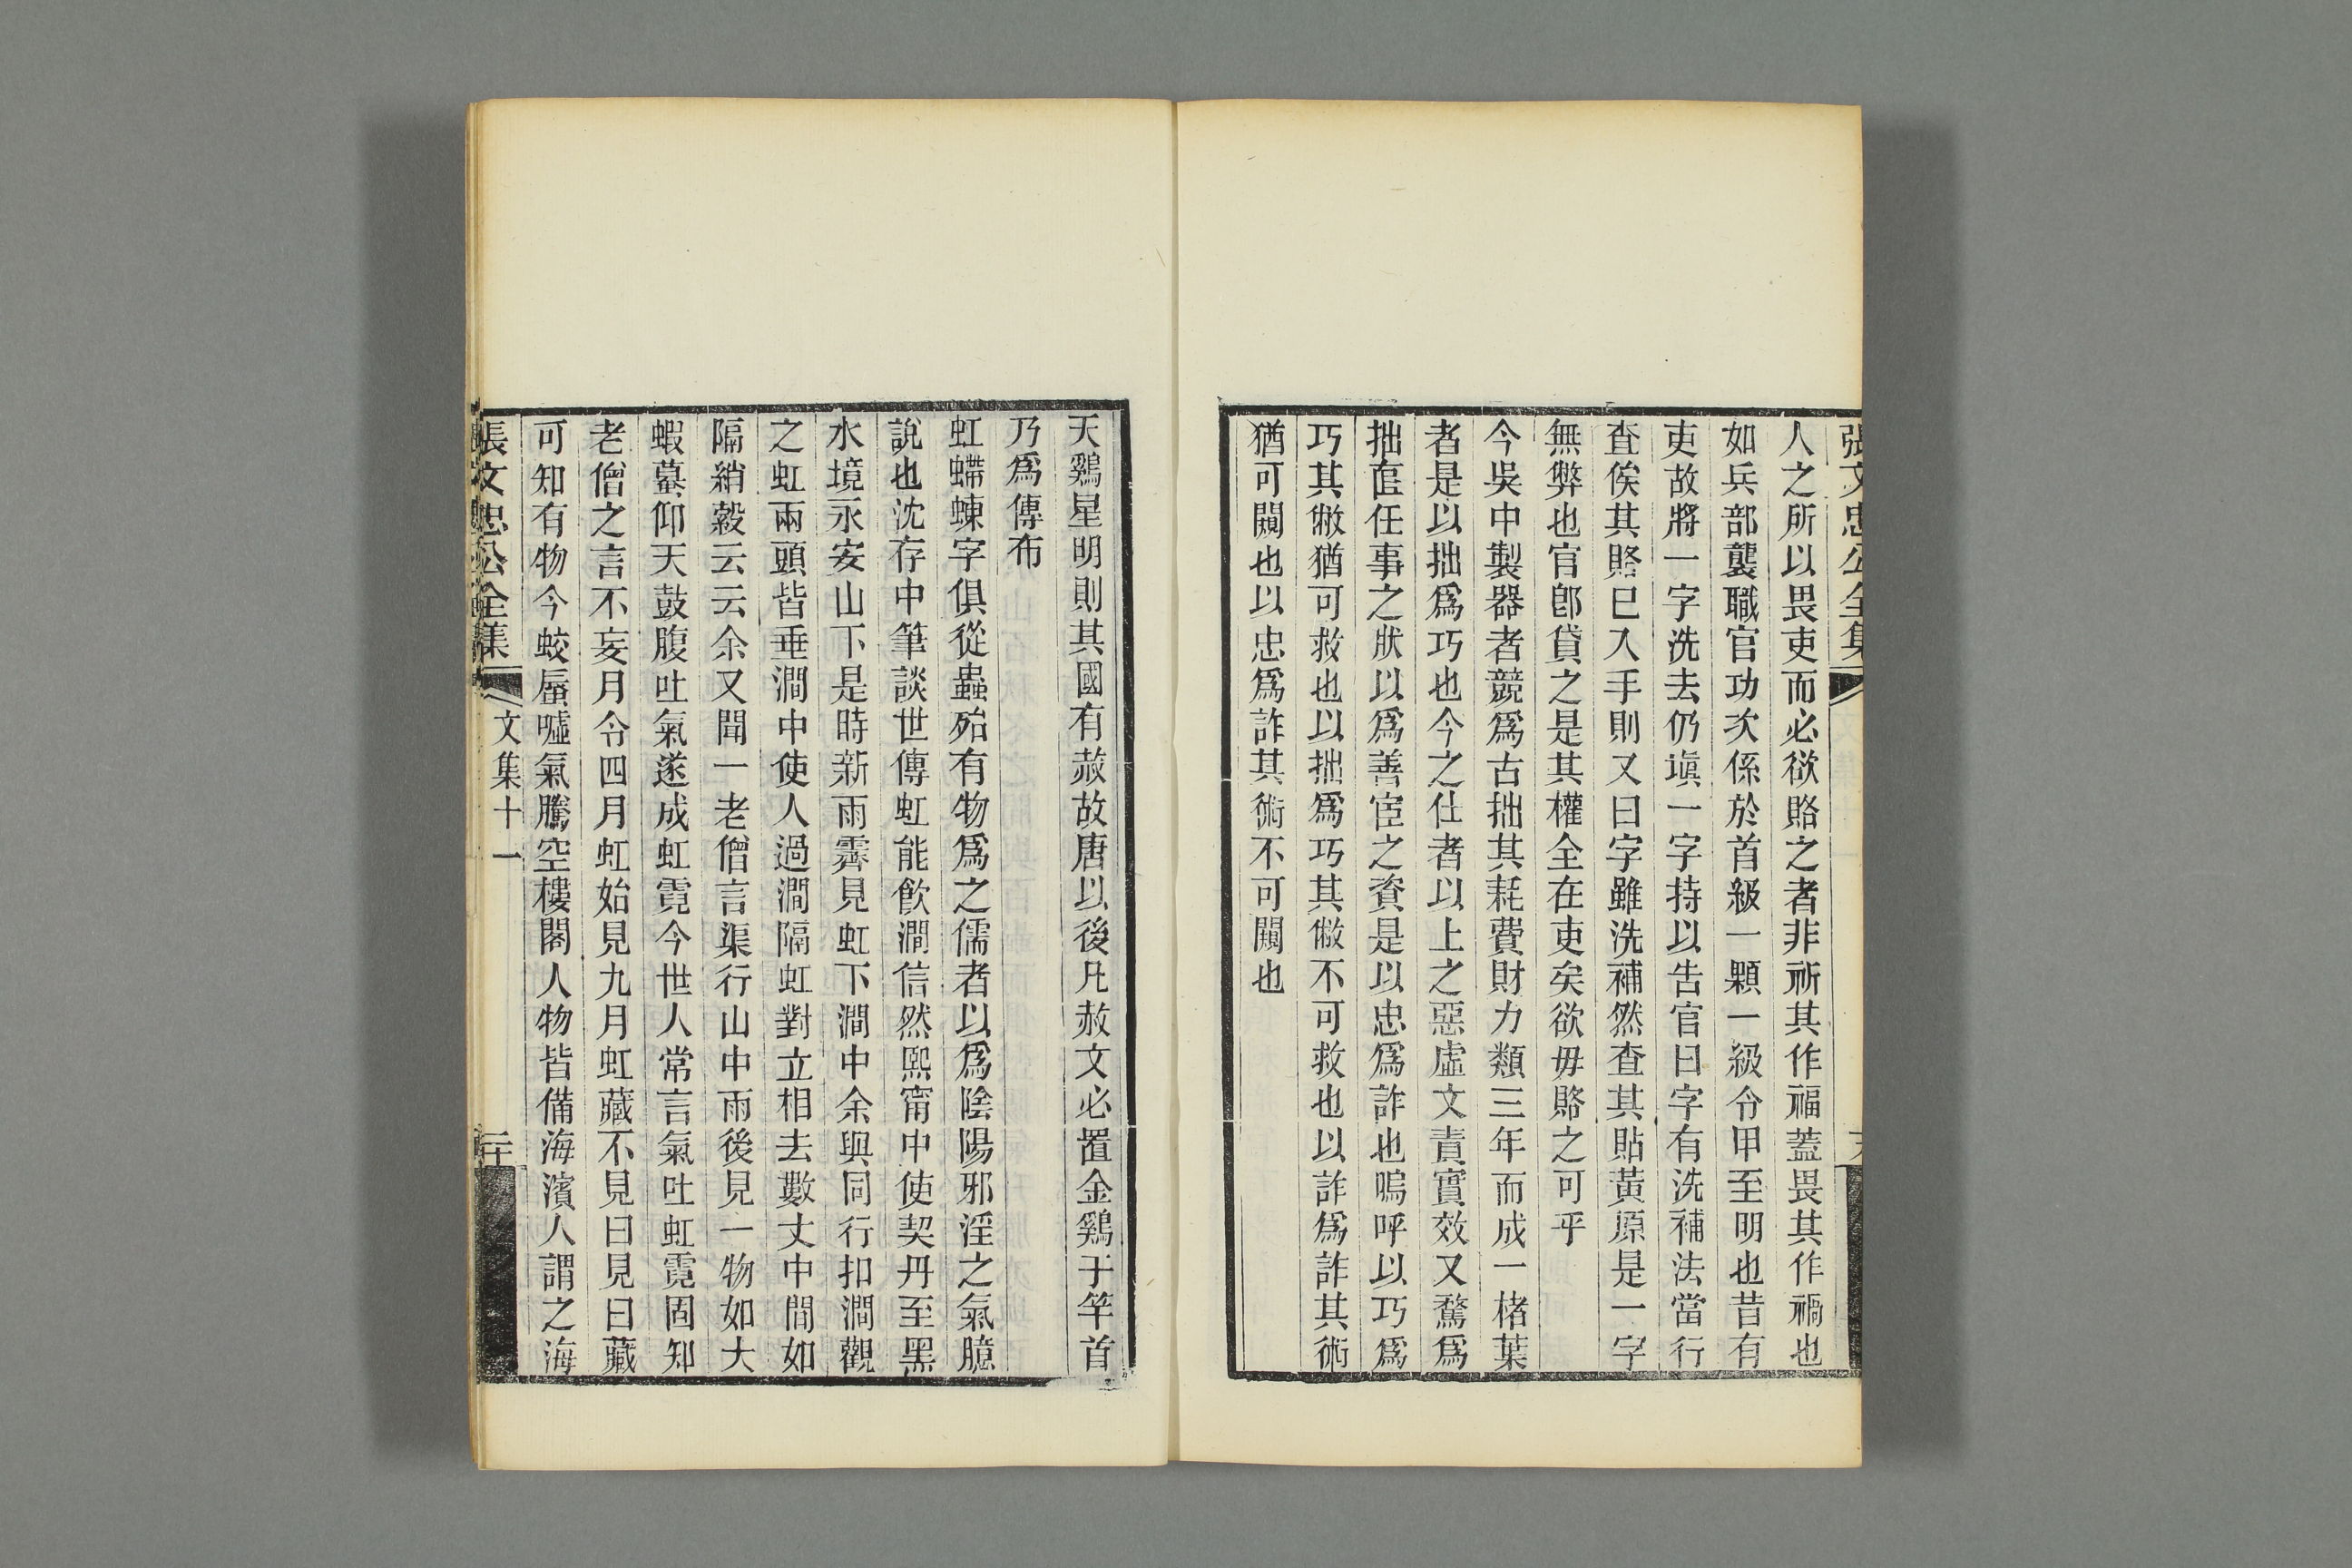 張文忠公全集
人之所以畏吏而必欲賂之者非祈其作福蓋畏其作禍也
如兵部襲職官功次係於首級一顆一級令甲至明也昔有
吏故將一字洗去仍塡一字持以告官曰字有洗補法當行
查俟其賂已入手則又曰字雖洗補然查其貼黃原是一字
無弊也官卽貸之是其權全在吏矣欲毋賂之可乎
今吳中製器者競爲古拙其耗費財力類三年而成一楮葉
者是以拙爲巧也今之仕者以上之惡虛文責實效又騖爲
拙直任事之狀以爲善宦之資是以忠爲詐也嗚呼以巧爲
巧其敝猶可救也以拙爲巧其敝不可救也以詐爲詐其術
猶可闚也以忠爲詐其術不可闚也
天鷄星明則其國有赦故唐以後凡赦文必置金鷄于竿首
乃爲傳布
虹蝃蝀字俱從蟲殆有物爲之儒者以爲陰陽邪淫之氣臆
說也沈存中筆談世傳虹能飮澗信然熙甯中使契丹至黑
水境永安山下是時新雨霽見虹下澗中余與同行扣澗觀
之虹兩頭皆垂澗中使人過澗隔虹對立相去數丈中間如
隔綃縠云云余又聞一老僧言渠行山中雨後見一物如大
蝦蟇仰天鼓腹吐氣遂成虹霓今世人常言氣吐虹霓固知
老僧之言不妄月令四月虹始見九月虹藏不見曰見曰藏
可知有物今蛟蜃噓氣騰空樓閣人物皆備海濱人謂之海
張文忠公全集 文集十一 二十